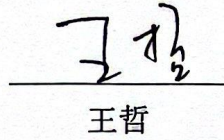 王哲
王哲